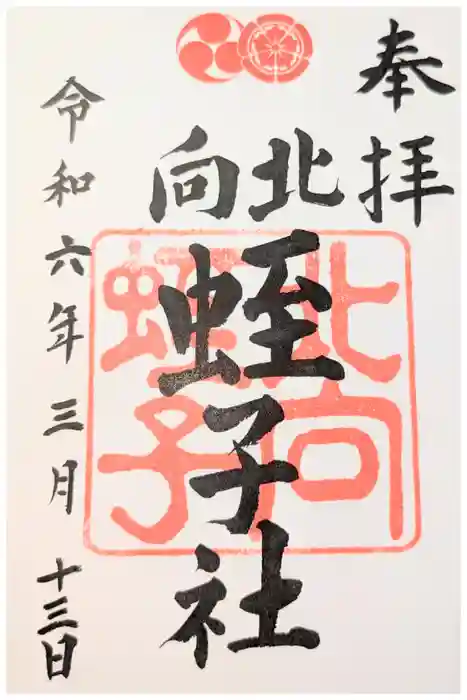 奉拝
北向
蛭子社
北向
蛭子
令和六年三月十三日